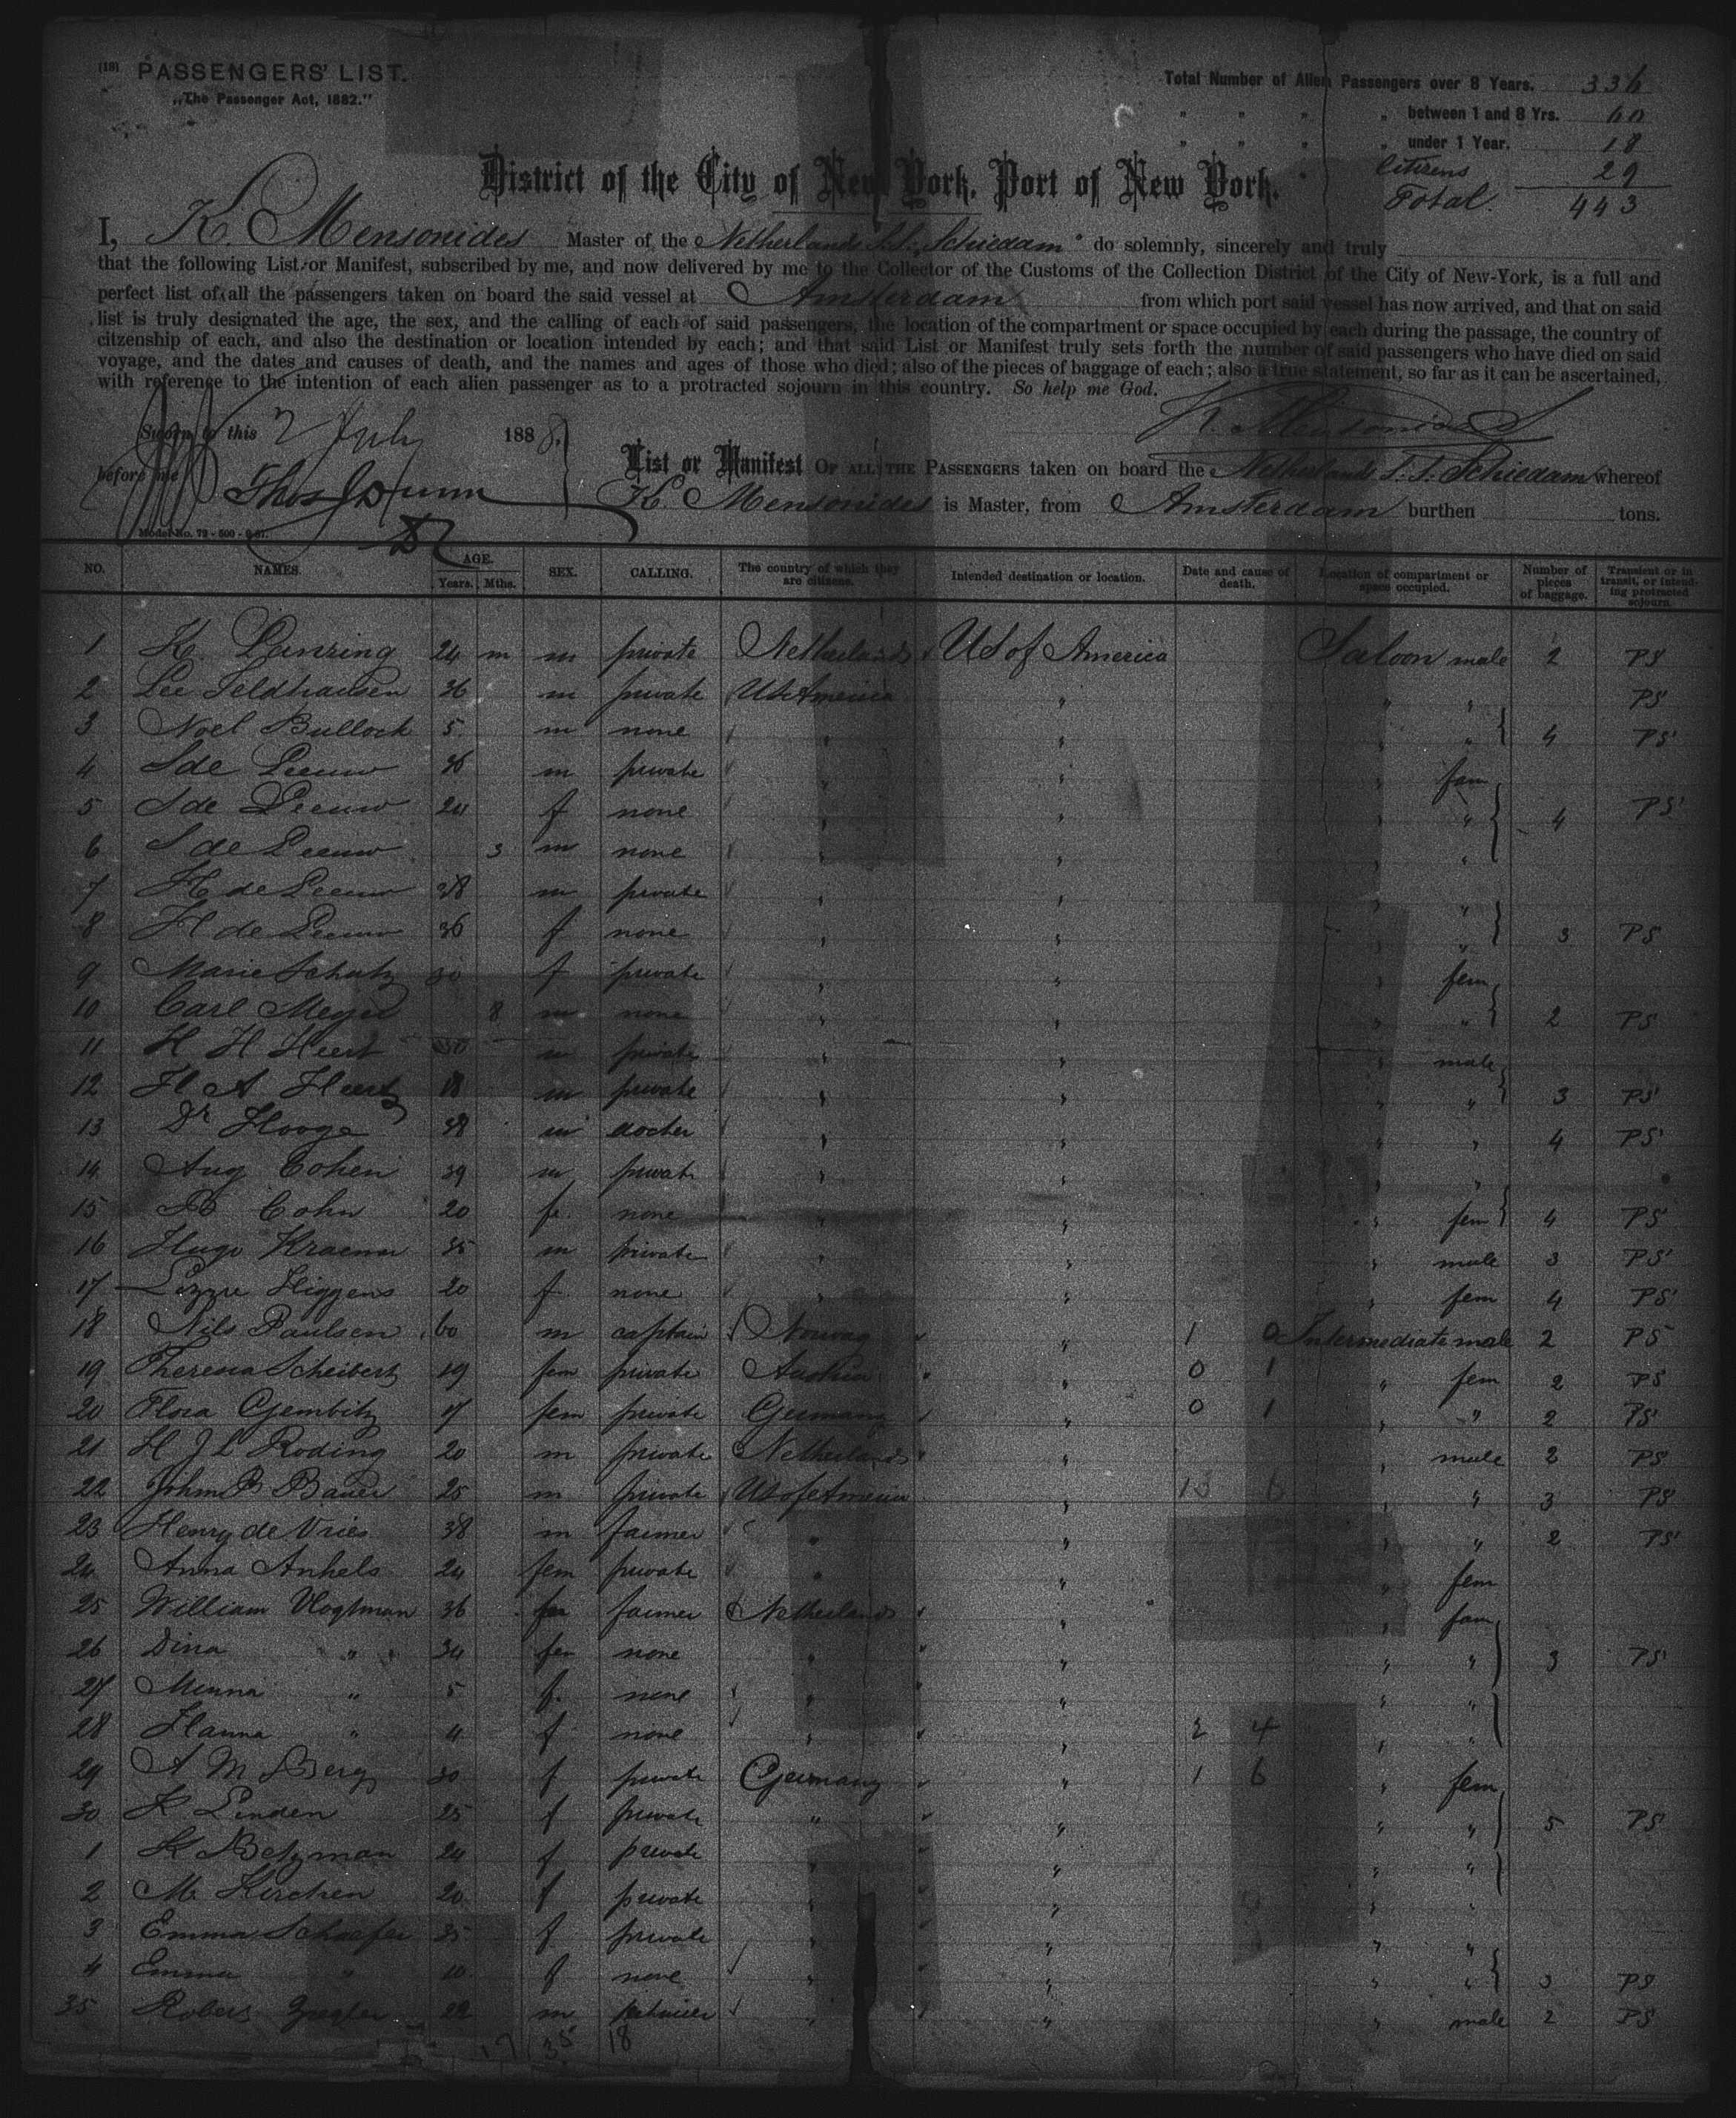 (18) PASSENGERS' LIST.
„The Passenger Act, 1882."
Total Number of Alien Passengers over 8 Years. 336
" " " „ between 1 and 8 Yrs. 60
" " " „ under 1 Year. 18
Citizens 29
Total. 443
District of the City of New York. Port of New York.
I, K. Mensonides Master of the Netherlands S.S. „Schiedam" do solemnly, sincerely and truly
that the following List or Manifest, subscribed by me, and now delivered by me to the Collector of the Customs of the Collection District of the City of New-York, is a full and
perfect list of all the passengers taken on board the said vessel at Amsterdam from which port said vessel has now arrived, and that on said
list is truly designated the age, the sex, and the calling of each of said passengers, the location of the compartment or space occupied by each during the passage, the country of
citzenship of each, and also the destination or location intended by each; and that said List or Manifest truly sets forth the number of said passengers who have died on said
voyage, and the dates and causes of death, and the names and ages of those who died; also of the pieces of baggage of each; also a true statement, so far as it can be ascertained,
with reference to the intention of each alien passenger as to a protracted sojourn in this country. So help me God.
K. Mensonides
Sworn to this 2 July 1888.
before me Thos Dunn
List or Manifest OF ALL THE PASSENGERS taken on board the Netherlands S.S. Schiedam whereof
K. Mensonides is Master, from Amsterdam burthen tons.
Model No. 72 - 500 -
NO. NAMES. AGE. Years. Mths. SEX. CALLING. The country of which they are citizens. Intended destination or location. Date and cause of death. Location of compartment or space occupied. Number of pieces of baggage. Transient or in transit, or intending protracted sojourn.
1 K. Lanzing 24 m m private Netherlands US of America Saloon male 2 PS
2 Lee Feldhausen 36 m private US America " " " PS
3 Noel Bullock 5 m none " " " " 4 PS
4 S de Leeuw 36 m private " " " fam
5 S de Leeuw 24 f none " " " " 4 PS
6 S de Leeuw 3 m none " " " "
7 H de Leeuw 38 m private " " " "
8 H de Leeuw 36 f none " " " " 3 PS
9 Marie Schutz 30 f private " " " fem
10 Carl Meyer 8 m none " " " " 2 PS
11 H H Heert m private " " " male
12 H A Heertz 18 m private " " " " 3 PS
13 Dr Hooge 38 m docter " " " " 4 PS
14 Aug Cohen 39 m private " " " "
15 B Cohn 20 fe. none " " " fem 4 PS
16 Hugo Kraemer 35 m private " " " male 3 PS
17 Lizzie Higgens 20 f. none " " " fem 4 PS
18 Nils Paulsen 60 m captain Norway " 1 0 Intermediate male 2 PS
19 Theresia Scheibert 19 fem private Austria " 0 1 " fem 2 PS
20 Flora Gembitz 17 fem private Germany " 0 1 " " 2 PS
21 H J L Roding 20 m private Netherlands " " male 2 PS
22 John B Bauer 25 m private US of America " 13 6 " " 3 PS
23 Henry de Vries 38 m farmer " " " " 2 PS
24 Anna Anhels 24 fem private " " " fem
25 William Vlogtman 36 farmer Netherlands " " fam
26 Dina " 34 fem none " " " " 3 PS
27 Minna " 5 f. none " " " "
28 Hanna " 4 f none " " 2 4 " "
29 A M Berg 30 f private Germany " 1 6 " fem
30 K Linden 25 f private " " " " 5 PS
1 K Betzman 24 f private " " " "
2 M. Kirchen 20 f private " " " "
3 Emma Schaefer 35 f private " " " "
4 Emma " 10 f none " " " " 3 PS
35 Robert 22 m " " " male 2 PS
17 35 18